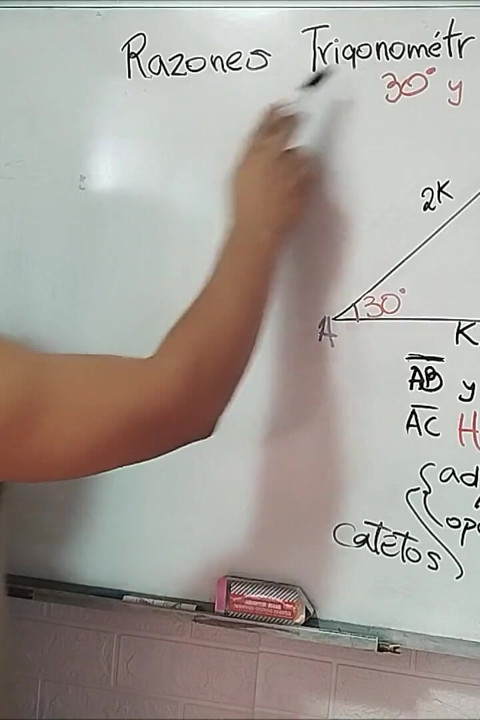 Razones Trigonométr
30° y
2K
30°
A
K
AB y
AC H
ad
op
catetos